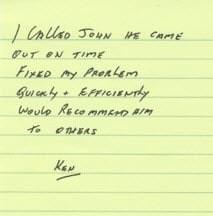 I CALLED JOHN HE CAME
OUT ON TIME
FIXED MY PROBLEM
QUICKLY + EFFICIENTLY
WOULD RECOMMEND HIM
TO OTHERS
KEN